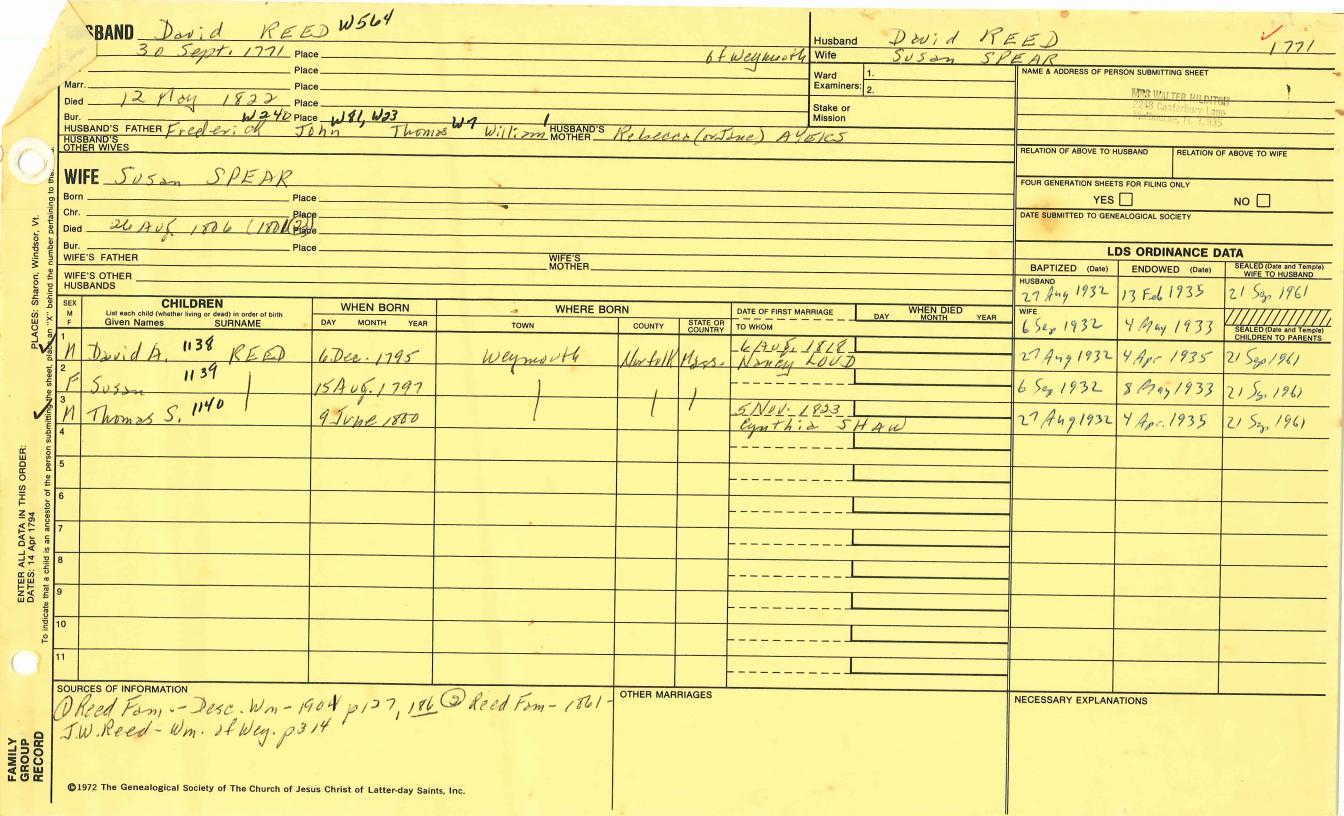 HUSBAND David REED W564
30 Sept. 1771 Place of Weymouth
Place
Marr. Place
Died 12 May 1822 Place
Bur. W240 Place W81, W23 W7 1
HUSBAND'S FATHER Frederick John Thomas William HUSBAND'S MOTHER Rebecca (or Jane) AYERS
HUSBAND'S OTHER WIVES
Husband David REED 1771
Wife Susan SPEAR
Ward Examiners: 1. 2.
Stake or Mission
NAME & ADDRESS OF PERSON SUBMITTING SHEET
MRS WALTER
RELATION OF ABOVE TO HUSBAND RELATION OF ABOVE TO WIFE
FOUR GENERATION SHEETS FOR FILING ONLY
YES NO
DATE SUBMITTED TO GENEALOGICAL SOCIETY
WIFE Susan SPEAR
Born Place
Chr. Place
Died 26 Aug. 1806 Place
Bur. Place
WIFE'S FATHER WIFE'S MOTHER
WIFE'S OTHER HUSBANDS
LDS ORDINANCE DATA
BAPTIZED (Date) ENDOWED (Date) SEALED (Date and Temple) WIFE TO HUSBAND
HUSBAND 27 Aug 1932 13 Feb 1935 21 Sep 1961
WIFE 6 Sep 1932 4 May 1933
SEALED (Date and Temple) CHILDREN TO PARENTS
SEX M F CHILDREN WHEN BORN WHERE BORN DATE OF FIRST MARRIAGE WHEN DIED
List each child (whether living or dead) in order of birth
Given Names SURNAME DAY MONTH YEAR TOWN COUNTY STATE OR COUNTRY TO WHOM DAY MONTH YEAR
1 M David A. 1138 REED 6 Dec. 1795 Weymouth Norfolk Mass. 6 Aug. 1818 Nancy LOUD 27 Aug 1932 4 Apr 1935 21 Sep 1961
2 F Susan 1139 15 Aug. 1797 6 Sep 1932 8 May 1933 21 Sep 1961
3 M Thomas S. 1140 9 June 1800 5 Nov. 1823 Cynthia SHAW 27 Aug 1932 4 Apr. 1935 21 Sep 1961
4
5
6
7
8
9
10
11
SOURCES OF INFORMATION
① Reed Fam. - Desc. Wm - 1901 p127, 186 ② Reed Fam - 1861 -
J.W. Reed - Wm. of Wey. p314
OTHER MARRIAGES
NECESSARY EXPLANATIONS
©1972 The Genealogical Society of The Church of Jesus Christ of Latter-day Saints, Inc.
FAMILY GROUP RECORD
ENTER ALL DATA IN THIS ORDER:
DATES: 14 Apr 1794 PLACES: Sharon, Windsor, Vt.
To indicate that a child is an ancestor of the person submitting the sheet, place an "X" behind the number pertaining to the